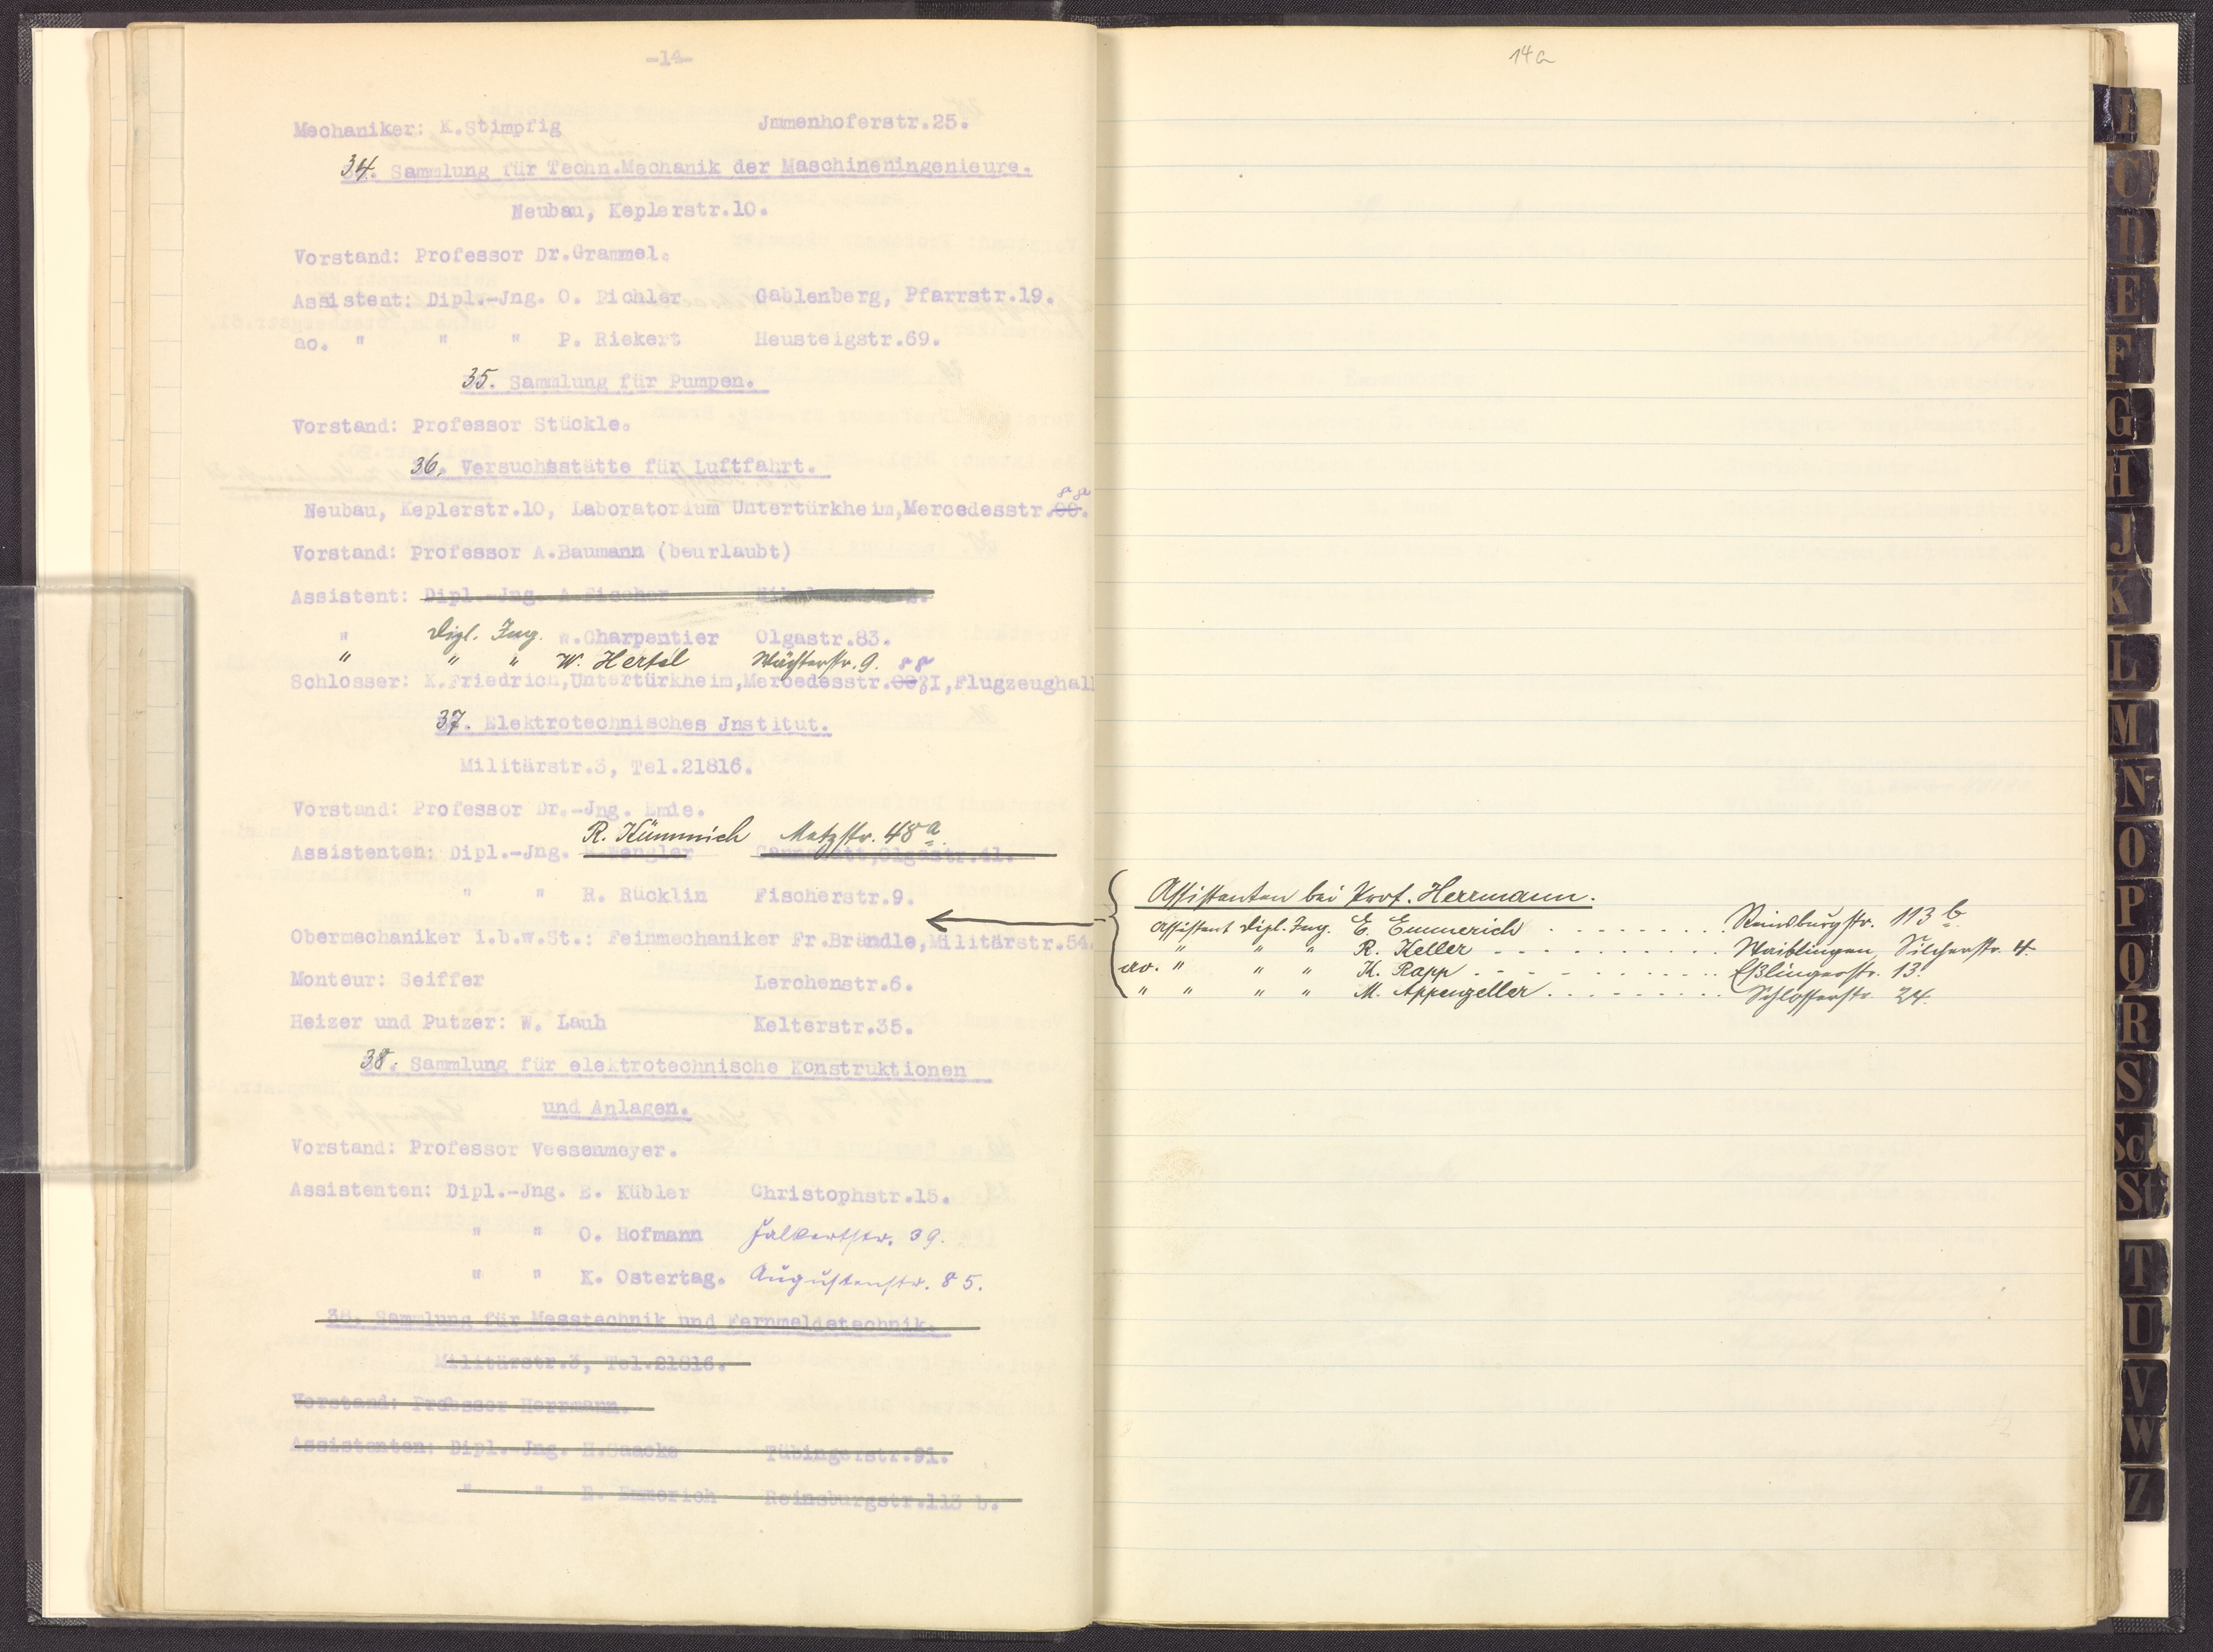 -14-
Mechaniker: K.Stimpfig Jmmenhoferstr.25.
34. Sammlung für Techn.Mechanik der Maschineningenieure.
Neubau, Keplerstr.10.
Vorstand: Professor Dr.Grammel.
Assistent: Dipl.-Jng. O. Pichler Gablenberg, Pfarrstr.19.
ao. " " " P. Riekert Heusteigstr.69.
35. Sammlung für Pumpen.
Vorstand: Professor Stückle.
36. Versuchsstätte für Luftfahrt.
88
Neubau, Keplerstr.10, Laboratorium Untertürkheim,Mercedesstr.00.
Vorstand: Professor A.Baumann (beurlaubt)
Assistent: Dipl.-Jng. A.Fischer
" Dipl. Ing. W.Charpentier Olgastr.83.
" " " W. Hertel Wächterstr. 9. 88
Schlosser: K.Friedrich,Untertürkheim,Mercedesstr. I,Flugzeughall
37. Elektrotechnisches Jnstitut.
Militärstr.3, Tel.21816.
Vorstand: Professor Dr.-Jng. Emde.
R. Kümmich Metzstr. 48a
Assistenten: Dipl.-Jng. R.Wengler Cannstatt,Olgastr.41.
" " R. Rücklin Fischerstr.9.
Obermechaniker i.b.w.St.: Feinmechaniker Fr.Brändle,Militärstr.54.
Monteur: Seiffer Lerchenstr.6.
Heizer und Putzer: W. Lauh Kelterstr.35.
38. Sammlung für elektrotechnische Konstruktionen
und Anlagen.
Vorstand: Professor Veesenmeyer.
Assistenten: Dipl.-Jng. E. Kübler Christophstr.15.
" " O. Hofmann Falkertstr. 39.
" " K. Ostertag. Augustenstr. 85.
38. Sammlung für Messtechnik und Fernmeldetechnik.
Militärstr.3, Tel.21816.
Vorstand: Professor Herrmann.
Assistenten: Dipl.-Jng. H.Saacke Tübingerstr.91.
" " E. Emmerich Reinsburgstr.113 b.
14a
Assistenten bei Prof. Herrmann.
Assistent Dipl. Ing. E. Emmerich Reinsburgstr. 113 b
" " " R. Keller Waiblingen, Silcherstr. 4.
ao. " " " K. Rapp Eßlingerstr. 13.
" " " " M. Appenzeller Schlosserstr. 24.
E
C
D
E
F
G
H
J
K
L
M
N
O
P
Q
R
S
Sch
St
T
U
V
W
Z